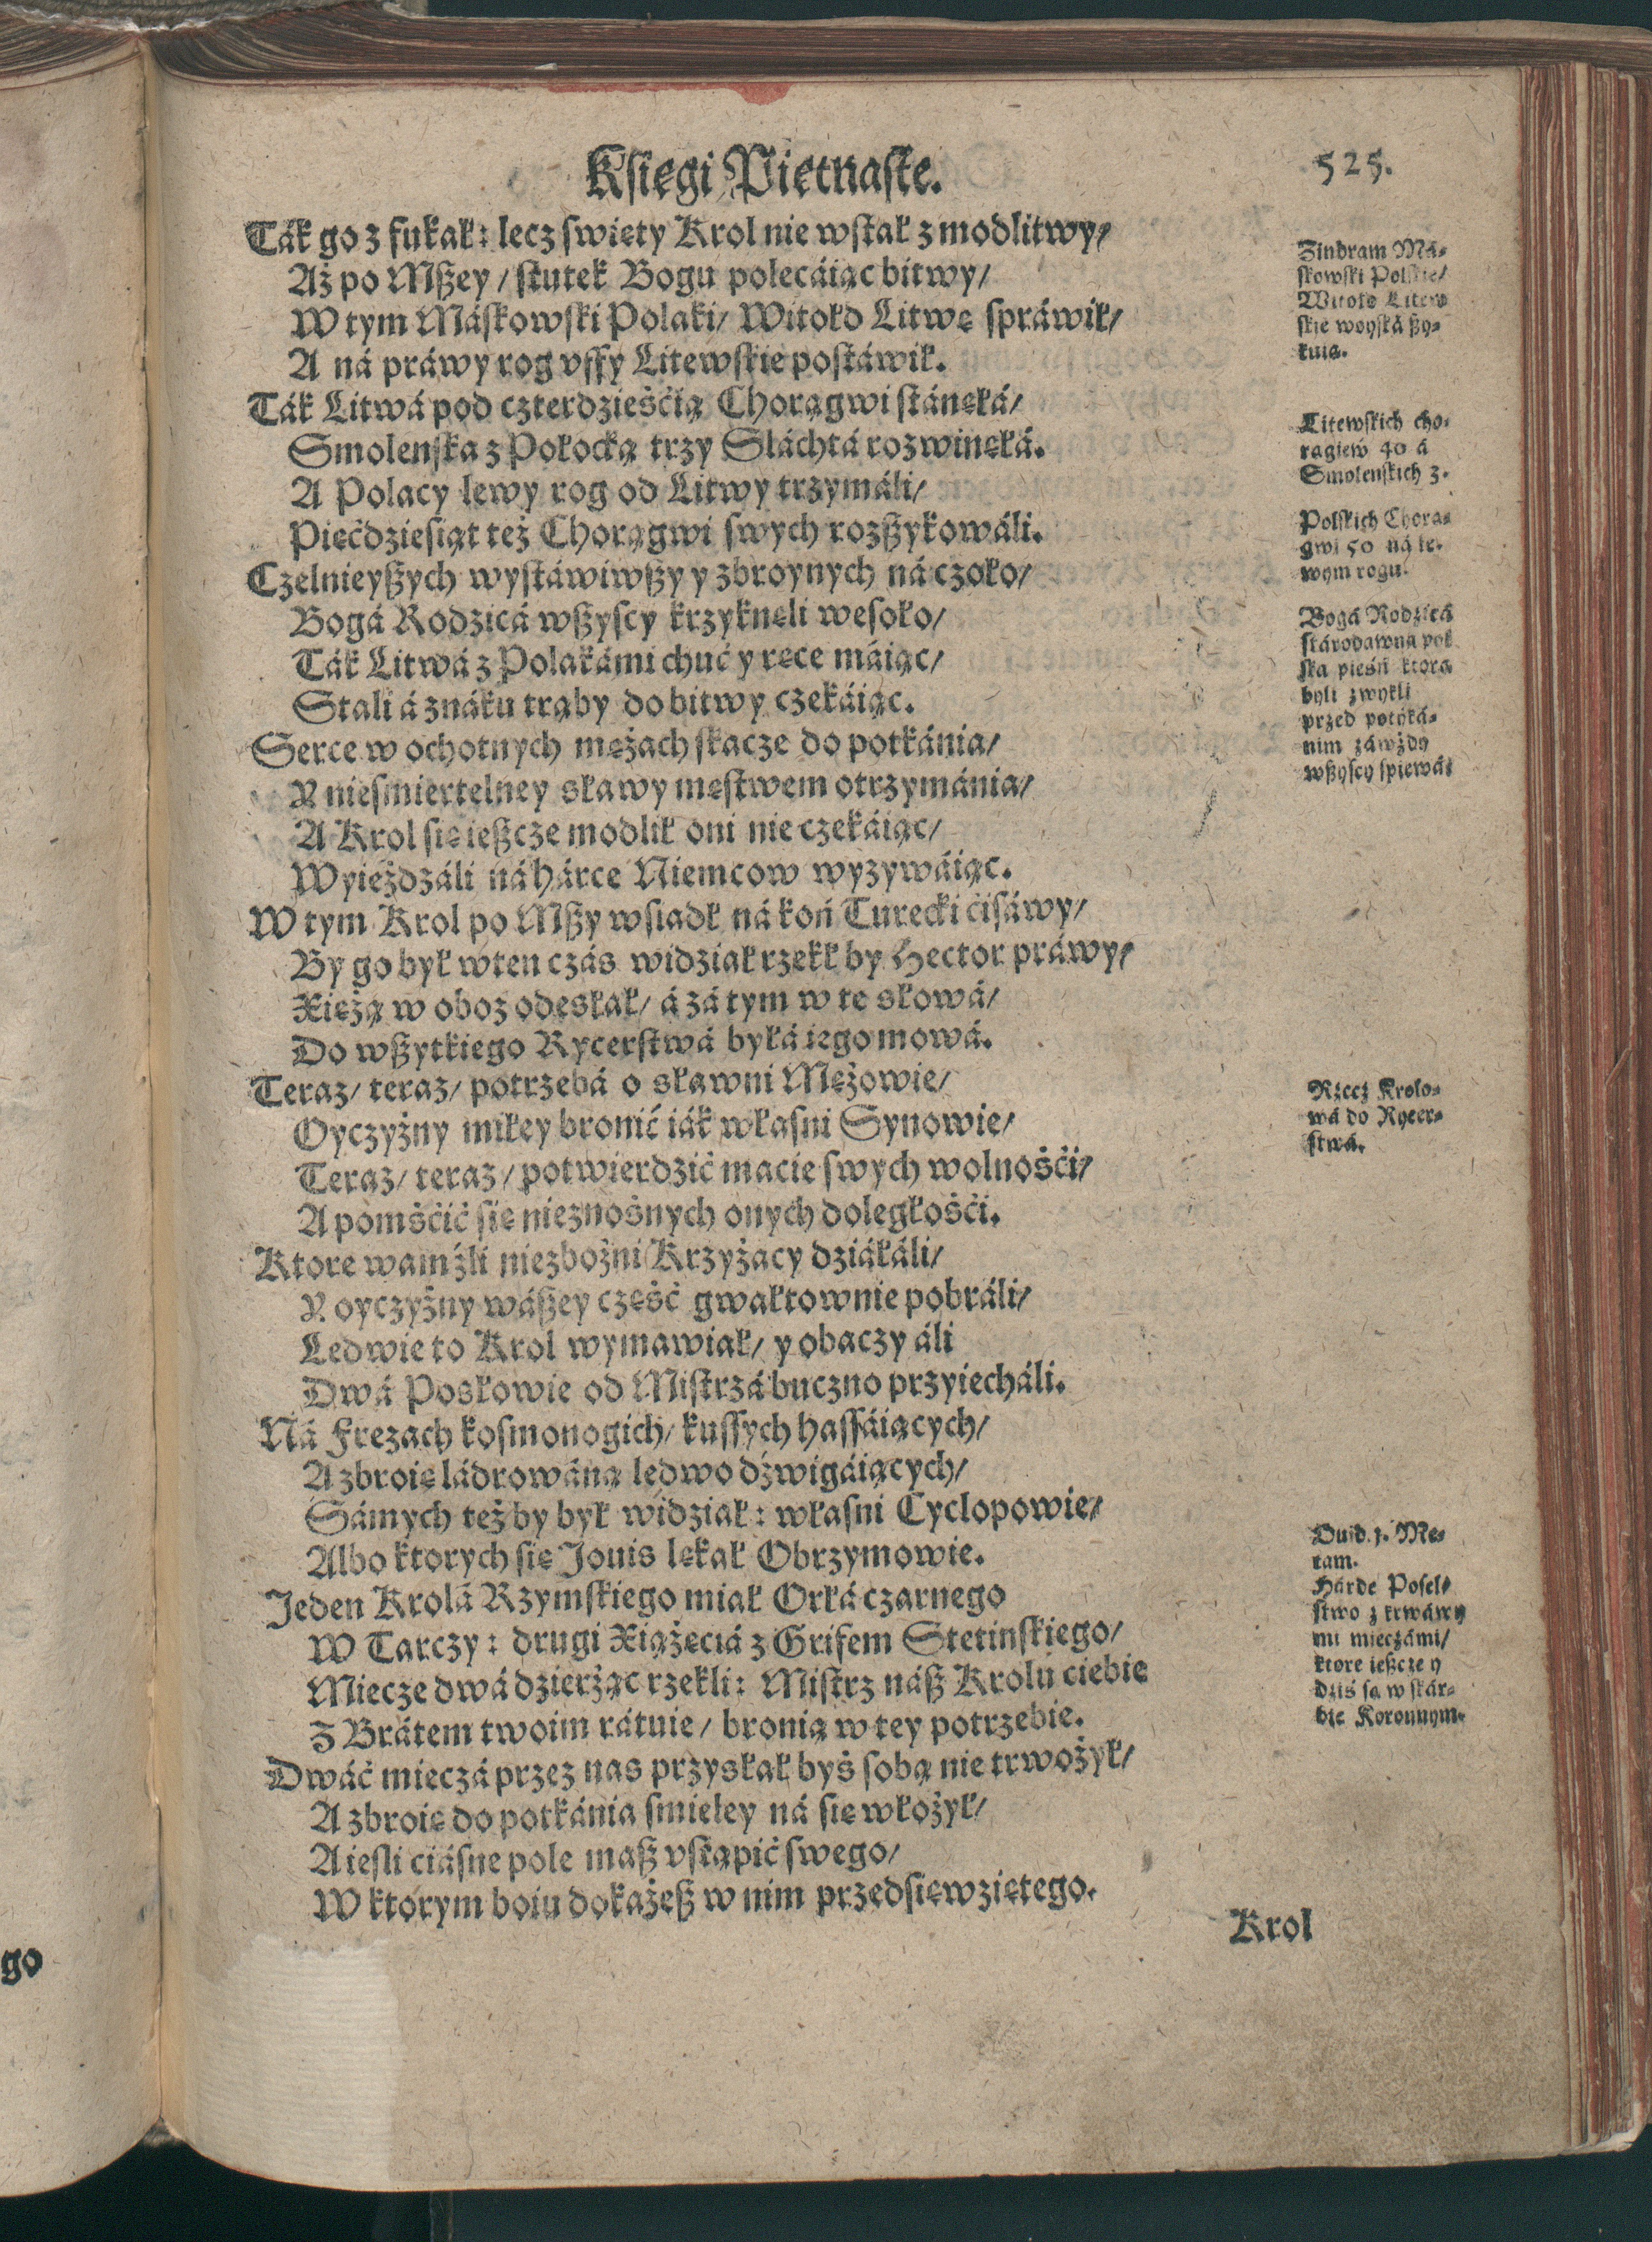 Kſięgi Piętnaſte.
525.
Ták go z fukał: lecz ſwięty Krol nie wſtał z modlitwy/
Aż po Mßey / ſkutek Bogu polecáiąc bitwy/
W tym Máſkowſki Polaki/ Witołd Litwę ſpráwił/
A ná práwy rog vffy Litewſkie poſtáwił.
Ták Litwá pod czterdzieśćią Chorągwi ſtánęłá/
Smolenſka z Połocką trzy Sláchtá rozwinęłá.
A Polacy lewy rog od Litwy trzymáli/
Pięćdzieſiąt też Chorągwi ſwych rozßykowáli.
Czelnieyßych wyſtáwiwßy y zbroynych ná czoło/
Bogá Rodzicá wßyſcy krzyknęli weſoło/
Ták Litwá z Polakámi chuć y ręce máiąc/
Stali á znáku trąby do bitwy czekáiąc.
Serce w ochotnych mężach ſkacze do potkánia/
Y nieſmiertelney sławy męſtwem otrzymánia/
A Krol ſię ießcze modlił oni nie czekáiąc/
Wyieżdzáli ná hárce Niemcow wyzywáiąc.
W tym Krol po Mßy wſiadł ná koń Turecki ćiſáwy/
By go był wten czás widział rzekł by Hector práwy/
Xiężą w oboz odesłał/ á zá tym w te słowá/
Do wßytkiego Rycerſtwá byłá iego mowá.
Teraz/ teraz/ potrzebá o sławni Mężowie/
Oyczyżny miłey bronić iák właſni Synowie/
Teraz/ teraz/ potwierdzić macie ſwych wolnośći/
A pomśćić ſię nieznoſnych onych doległośći.
Ktore wamżli niezbożni Krzyżacy dziáłáli/
Y oyczyżny wáßey część gwałtownie pobráli/
Ledwie to Krol wymawiał/ y obaczy áli
Dwá Posłowie od Miſtrzá buczno przyiecháli.
Ná Frezach koſmonogich/ kuſſych haſſáiących/
A zbroię ládrowáną ledwo dźwigáiących/
Sámych też by był widział: właſni Cyclopowie/
Albo ktorych ſię Jouis lękał Obrzymowie.
Jeden Krolá Rzymſkiego miał Orłá czarnego
W Tarczy: drugi Xiążęciá z Grifem Stetinſkiego/
Miecze dwá dzierżąc rzekli: Miſtrz náß Krolu ciebie
Z Brátem twoim rátuie/ bronią w tey potrzebie.
Dwáć mieczá przez nas przysłał byś ſobą nie trwożył/
A zbroię do potkánia ſmieley ná ſię włożył/
A ieſli ciáſne pole maß vſtąpić ſwego/
W ktorym boiu dokażeß w nim przedſięwziętego.
Krol
Zindram Má-
ſkowſki Polſkie/
Witołd Litew
ſkie woyſká ßy-
kuią.
Litewſkich cho-
rągiew 40 á
Smolenſkich 3.
Polſkich Chorą-
gwi 50 ná le-
wym rogu.
Bogá Rodzicá
ſtárodawna pol
ſka pieśń ktorą
byli zwykli
przed potyká-
nim záwżdy
wßyſcy ſpiewáć
Rzecz Krolo-
wá do Rycer-
ſtwá.
Ouid. 1. Me-
tam.
Hárde Poſel-
ſtwo z krwáwy
mi mieczámi/
ktore ießcze y
dziś ſą w ſkár-
bie Koronnym.
go